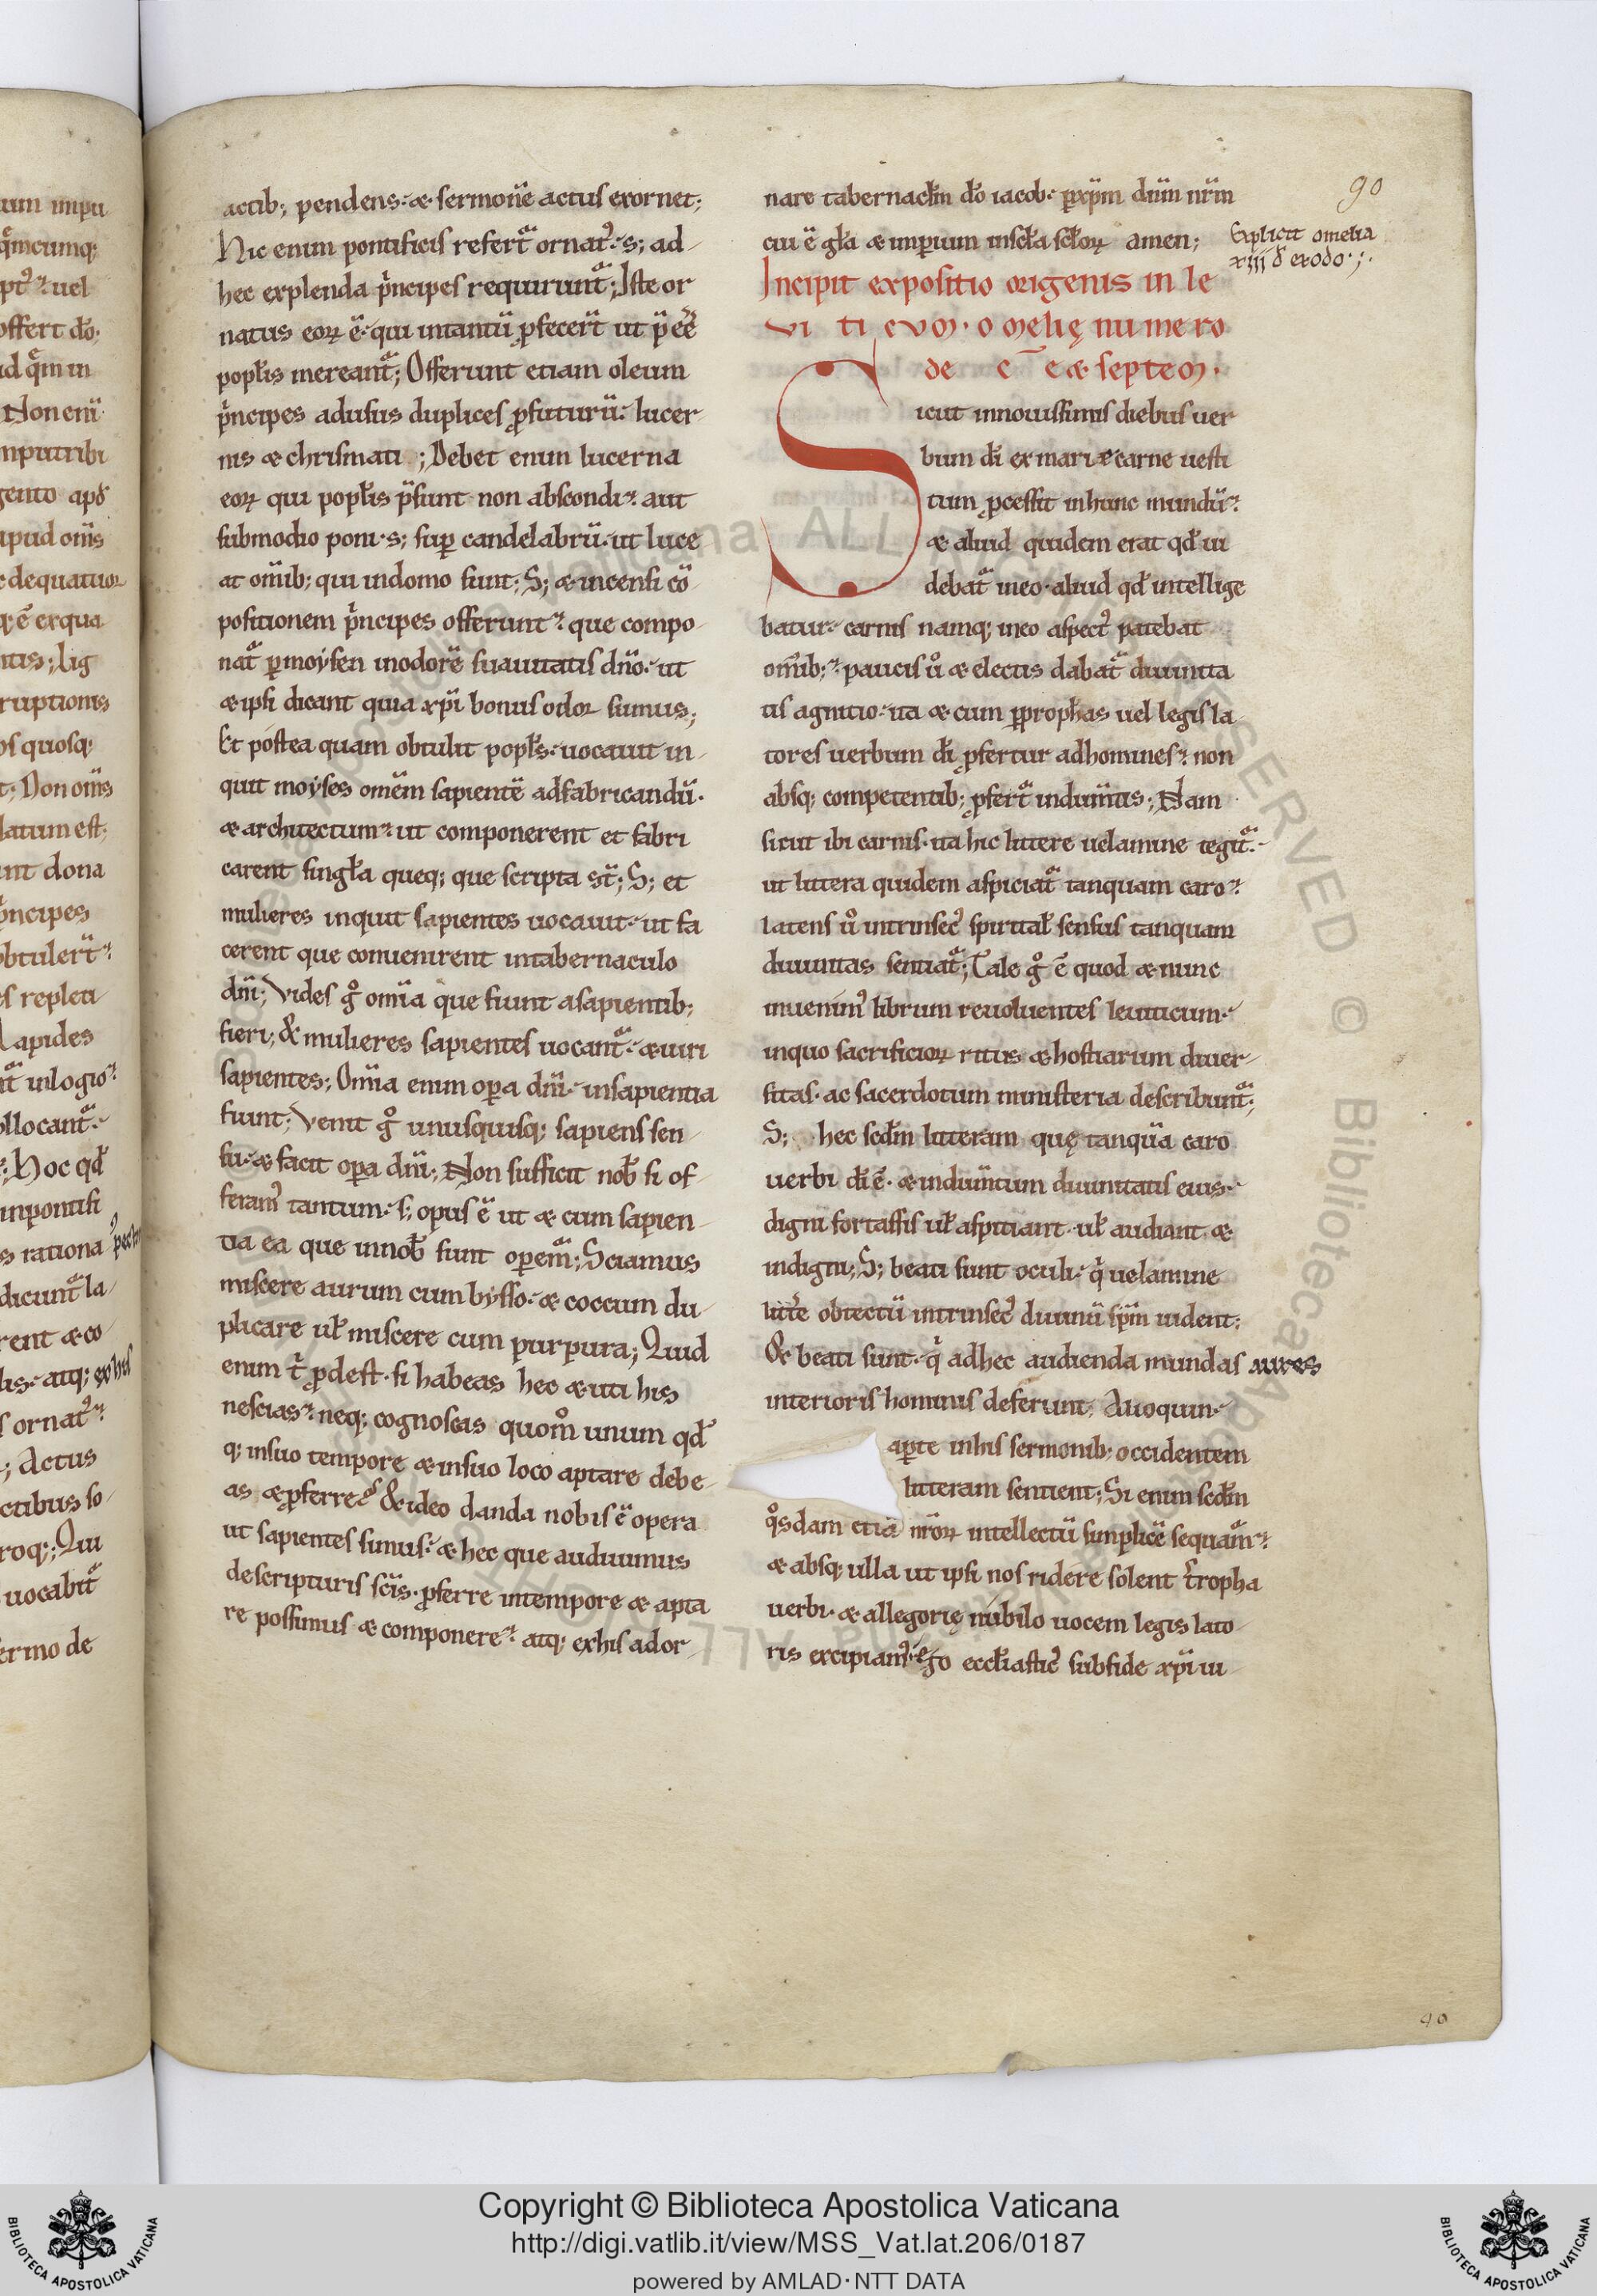 actib; pendens. æ sermone actus exornet;
Hic enim pontificis refert ornat. s; ad-
hec explenda pncipes requirunt; Iste or
natus eoꝝ ē qui intantū ꝓfecert ut p̄ee
poplis mereant; Offerunt etiam oleum
pncipes adusus duplices ꝓfuturū. lucer-
nis æ chrismati; Debet enim lucerna
eoꝝ qui poplis p̄sunt non abscondi. aut
submodio poni. s; sup candelabrū. ut luce
at omib; qui indomo sunt; S; æ incensi cō-
positionem pncipes offerunt. que compo-
nat ꝑmoysen inodorē suauitatis dno. ut
æ ipsi dicant quia xpi bonus odor sumus;
Et postea quam obtulit popls. uocauit in-
quit moyses omem sapientē adfabricandū.
æ architectum. ut componerent et fabri
carent singla queq; que scripta st; S; et
mulieres inquit sapientes uocauit. ut fa
cerent que conuenirent intabernaculo
dni; Vides g omia que fiunt asapientib;
fieri; & mulieres sapientes uocant. æ uiri
sapientes; Omia enim opa dni. insapientia
fiunt; Venit g unusquisq; sapiens sen-
su. æ facit opa dni; Non sufficit nob si of-
feram tantum. s; opus ē ut æ cum sapien-
tia ea que innob sunt opem; Sciamus
miscere aurum cum bysso. æ coccum du-
plicare ul miscere cum purpura; Quid
enim t ꝓdest. si habeas hec æ uti his
nescias. neq; cognoscas quom unum qd
q; insuo tempore æ insuo loco aptare debe-
as æ ꝓferre; & ideo danda nobis ē opera
ut sapientes simus. æ hec que audiuimus
descripturis scis. ꝓferre intempore æ apta
re possimus æ componere. atq; exhis ador-
nare tabernaclm do iacob. ꝑxpm dnm nrm
cui ē gla æ imperium inscla scloꝝ amen;
Explicit omelia
xiii d exodo;
Incipit expositio origenis in le
vi ti cvm. omelię numero
de cē eæ septem.
Sicut innouissimis diebus uer
bum di ex maria carne uesti
tum ꝓcessit inhunc mundū.
æ aliud quidem erat qd ui
debat ineo. aliud qd intellige
batur. carnis namq; ineo aspect patebat
omib;. paucis u æ electis dabat diuinita
tis agnitio. ita æ cum ꝑprophas uel legis la-
tores uerbum di ꝓfertur adhomines. non
absq; competentib; ꝓfert indumtis; Nam
sicut ibi carnis. ita hic littere uelamine tegit.
ut littera quidem aspiciat tanquam caro.
latens u intrinsec spirital sensus tanquam
diuinitas sentiat; Tale g ē quod æ nunc
inuenim librum reuoluentes leuiticum.
inquo sacrificioꝝ ritus æ hostiarum diuer-
sitas. ac sacerdotum ministeria describunt;
S; hec scdm litteram quę tanquā caro
uerbi di ē. æ indumtum diuinitatis eius.
digni fortassis ul aspitiant. ul audiant. æ
indigni; S; beati sunt oculi. q uelamine
littre obtectū intrinsec diuinū spm uident;
& beati sunt. q adhec audienda mundas aures
interioris hominis deferunt; Alioquin
aꝑte inhis sermonib; occidentem
litteram sentient; Si enim scdm
qsdam etiā nroꝝ intellectū simplicē sequam.
æ absq; ulla ut ipsi nos ridere solent tropha
uerbi. æ allegorię nubilo uocem legis lato-
ris excipiam. ego eccliastic subfide xpi ui-
90
90
Copyright © Biblioteca Apostolica Vaticana
http://digi.vatlib.it/view/MSS_Vat.lat.206/0187
powered by AMLAD·NTT DATA
BIBLIOTECA APOSTOLICA VATICANA
BIBLIOTECA APOSTOLICA VATICANA